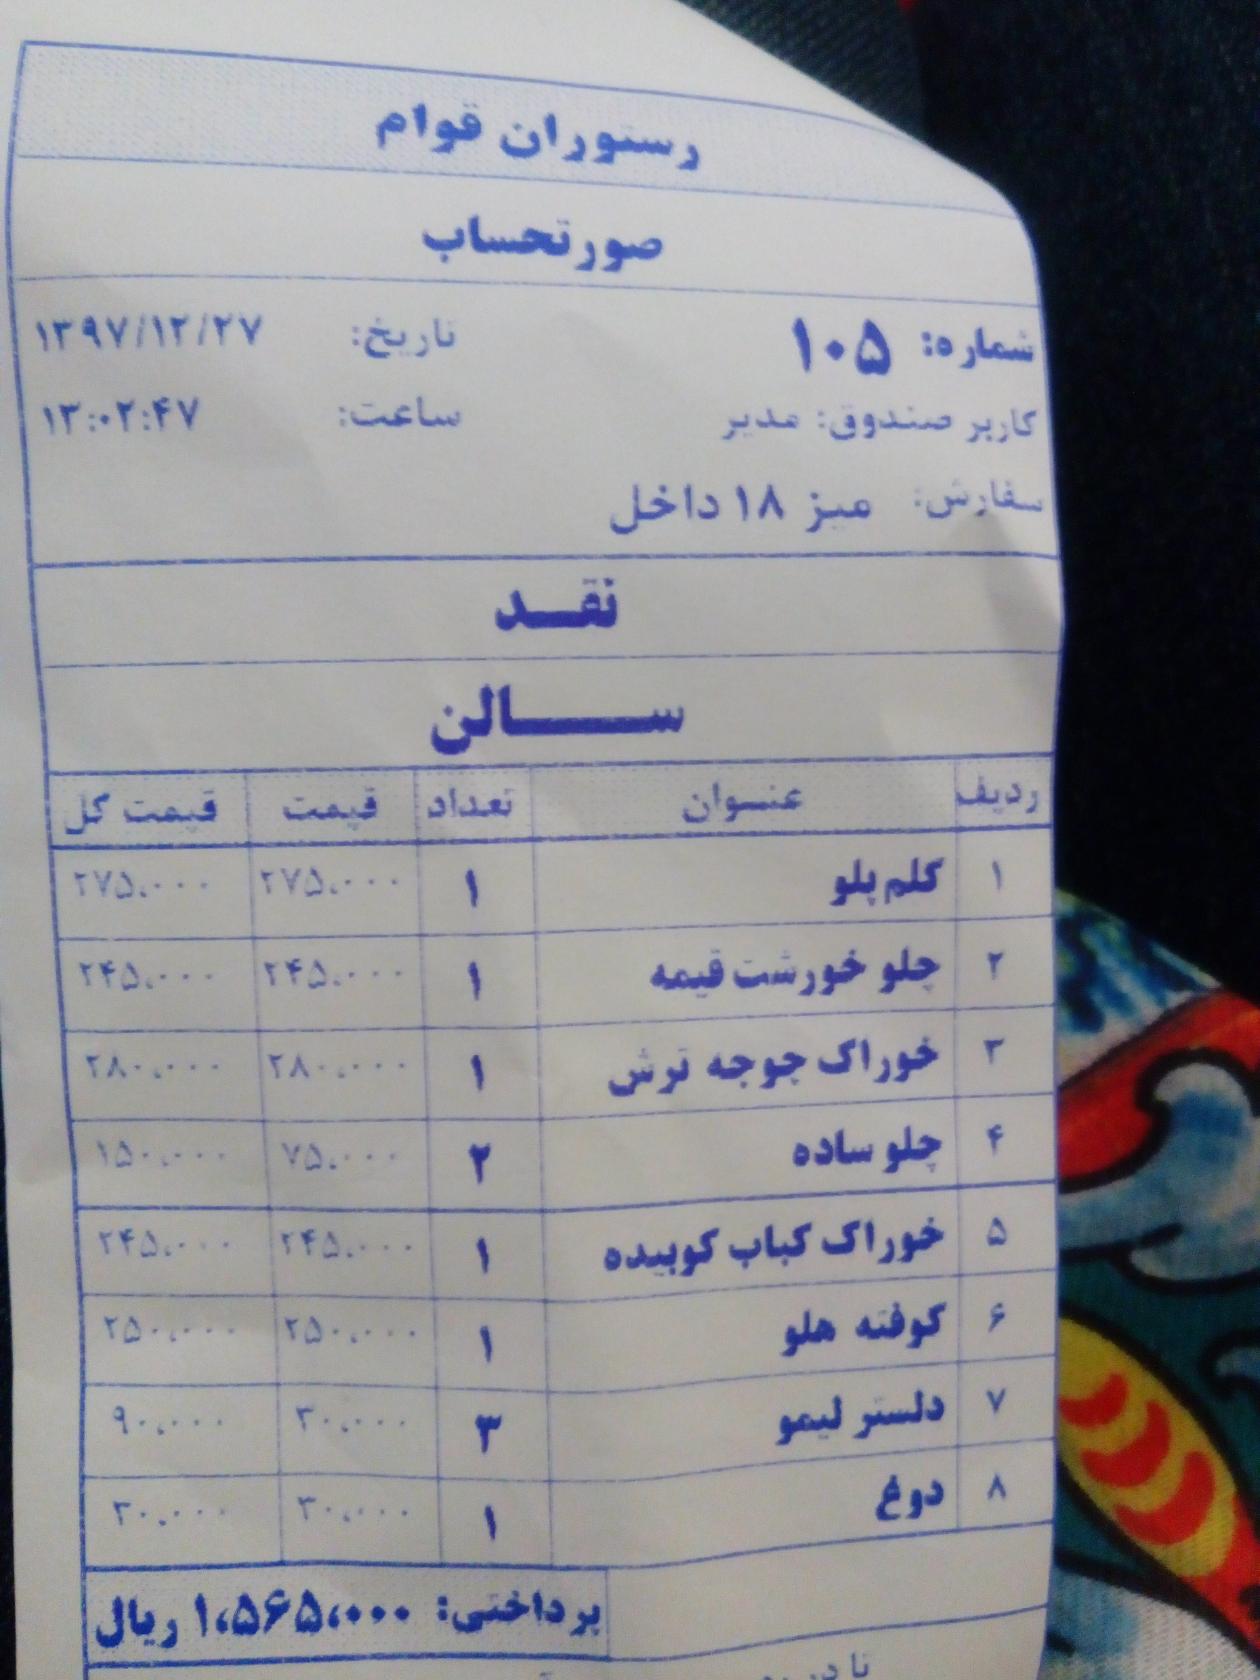 رستوران قوام
صورتحساب
شماره: ۱۰۵ تاریخ: ۱۳۹۷/۱۲/۲۷
کاربر صندوق: مدیر ساعت: ۱۳:۰۲:۴۷
سفارش: میز ۱۸ داخل
نقد
سالن
ردیف عنوان تعداد قیمت قیمت کل
۱ کلم پلو ۱ ۲۷۵،۰۰۰ ۲۷۵،۰۰۰
۲ چلو خورشت قیمه ۱ ۲۴۵،۰۰۰ ۲۴۵،۰۰۰
۳ خوراک جوجه ترش ۱ ۲۸۰،۰۰۰ ۲۸۰،۰۰۰
۴ چلو ساده ۲ ۷۵،۰۰۰ ۱۵۰،۰۰۰
۵ خوراک کباب کوبیده ۱ ۲۴۵،۰۰۰ ۲۴۵،۰۰۰
۶ کوفته هلو ۱ ۲۵۰،۰۰۰ ۲۵۰،۰۰۰
۷ دلستر لیمو ۳ ۳۰،۰۰۰ ۹۰،۰۰۰
۸ دوغ ۱ ۳۰،۰۰۰ ۳۰،۰۰۰
پرداختی: ۱،۵۶۵،۰۰۰ ریال